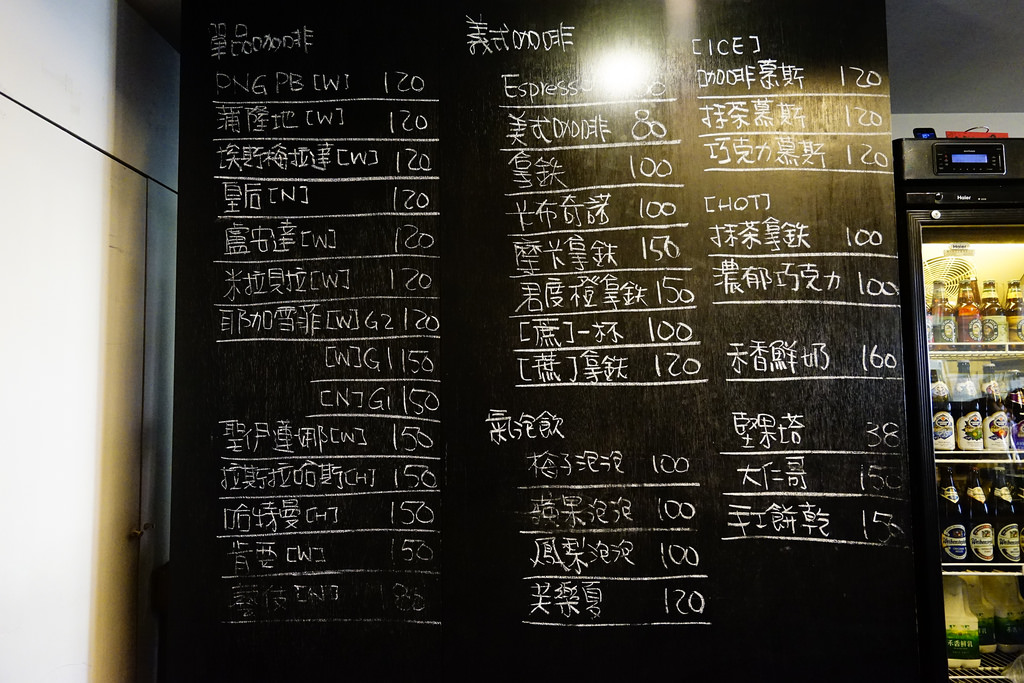 單品咖啡
PNG PB [W] 120
蒲隆地 [W] 120
埃斯梅拉達 [W] 120
皇后 [N] 120
盧安達 [W] 120
米拉貝拉 [W] 120
耶加雪菲 [W] G2 120
[W] G1 150
[N] G1 150
聖伊蓮娜 [W] 150
拉斯拉哈斯 [H] 150
哈特曼 [H] 150
肯亞 [W] 150
藝伎
義式咖啡
Espresso
美式咖啡 80
拿鐵 100
卡布奇諾 100
摩卡拿鐵 150
君度橙拿鐵 150
[蔗] 一杯 100
[蔗] 拿鐵 120
氣泡飲
梅子泡泡 100
蘋果泡泡 100
鳳梨泡泡 100
芙樂夏 120
[ICE]
咖啡慕斯 120
抹茶慕斯 120
巧克力慕斯 120
[HOT]
抹茶拿鐵 100
濃郁巧克力 100
禾香鮮奶 160
堅果塔 38
大仁哥 150
手工餅乾 150
Haier